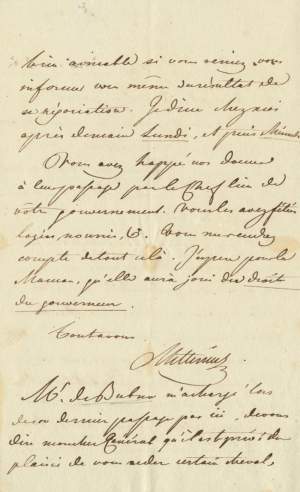 bien aimable si vous veniez vous
informer vous même du résultat de
se négociation. Je dine
après demain Lundi, et puis
Vous avez happé vos dames
à leur passage par le Chef lieu de
vôtre gouvernement. Vous les avez fêtées
logées, nourries, &. Vous me rendrez
compte de tout cela. J'espère pour la
Maman, qu'elle aura joui du droit
du gouverneur.
Tout à vous
Metternich
Mr. de m'a chargé lors
de son dernier passage par ici, de vous
dire mon cher Général qu'il est privé du
plaisir de vous céder certain cheval,